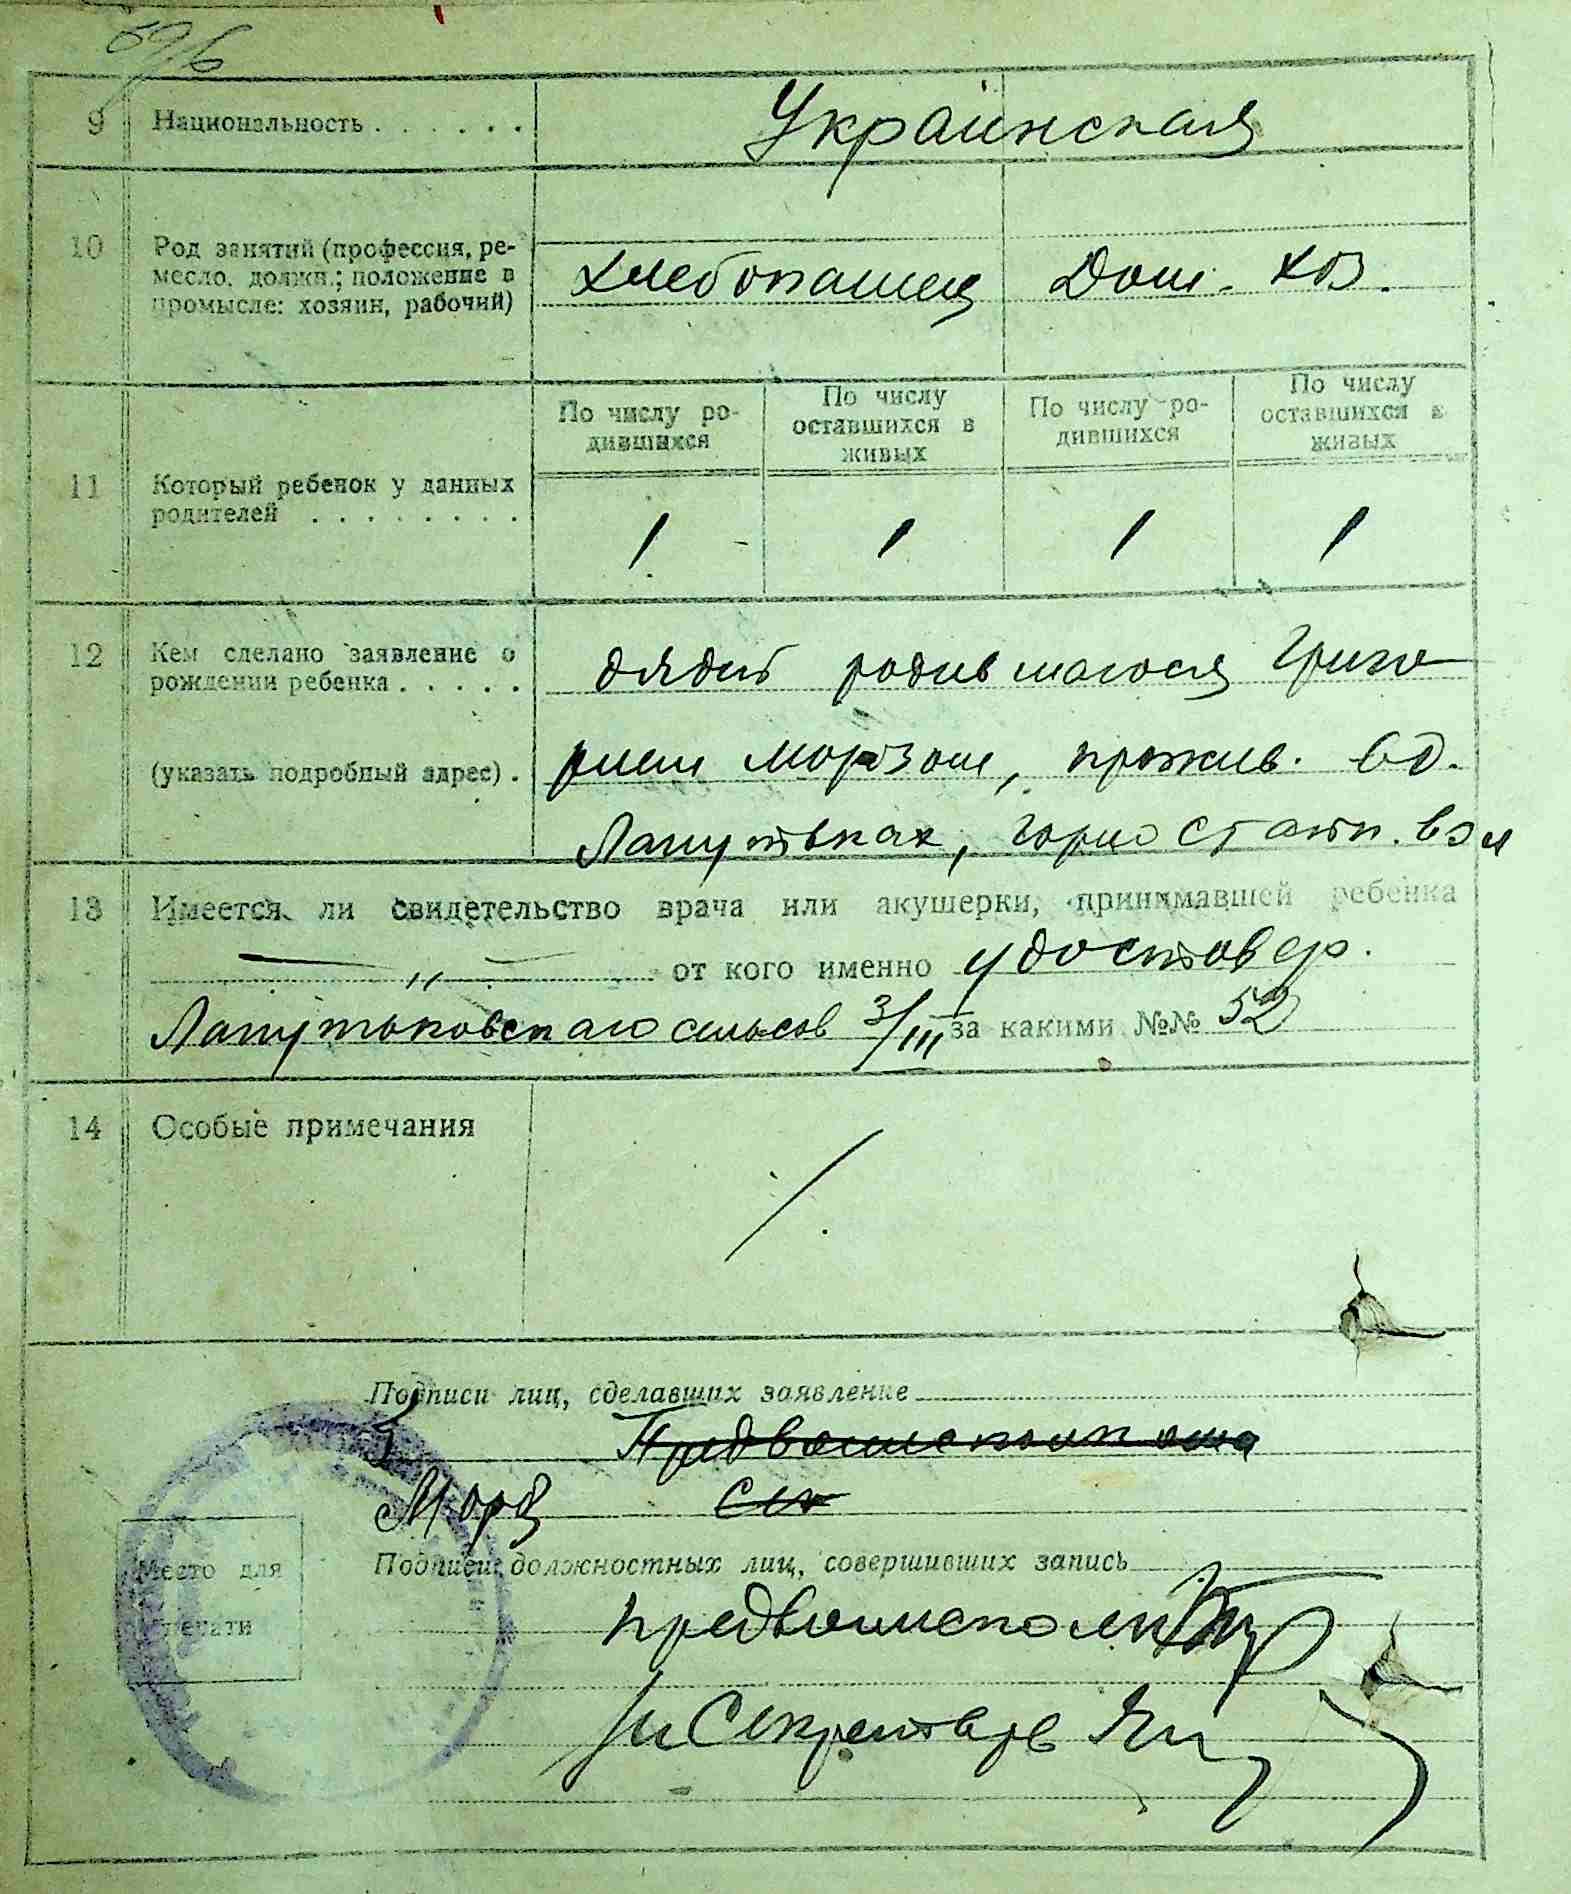 9 Национальность . . . . . . Украинская
10 Род занятий (профессия, ре-
месло, должн.; положение в
промысле: хозяин, рабочий)
хлебопашец Дом. хоз.
По числу ро-
дившихся
По числу
оставшихся в
живых
По числу ро-
дившихся
По числу
оставшихся в
живых
11 Который ребенок у данных
родителей . . . . . . . .
1 1 1 1
12 Кем сделано заявление о
рождении ребенка . . . . .
(указать подробный адрес) .
дядей родившагося Григо
рием Морзом, прожив. в д.
Лапутьках, Горностайп. вол
13 Имеется ли свидетельство врача или акушерки, принимавшей ребенка
— „ — от кого именно удостовер.
Лапутьковскаго сельсов 3/III за какими №№ 52
14 Особые примечания
Подписи лиц, сделавших заявление
Морз
Место для
печати
Подписи должностных лиц, совершивших запись
предволисполк
Секретарь